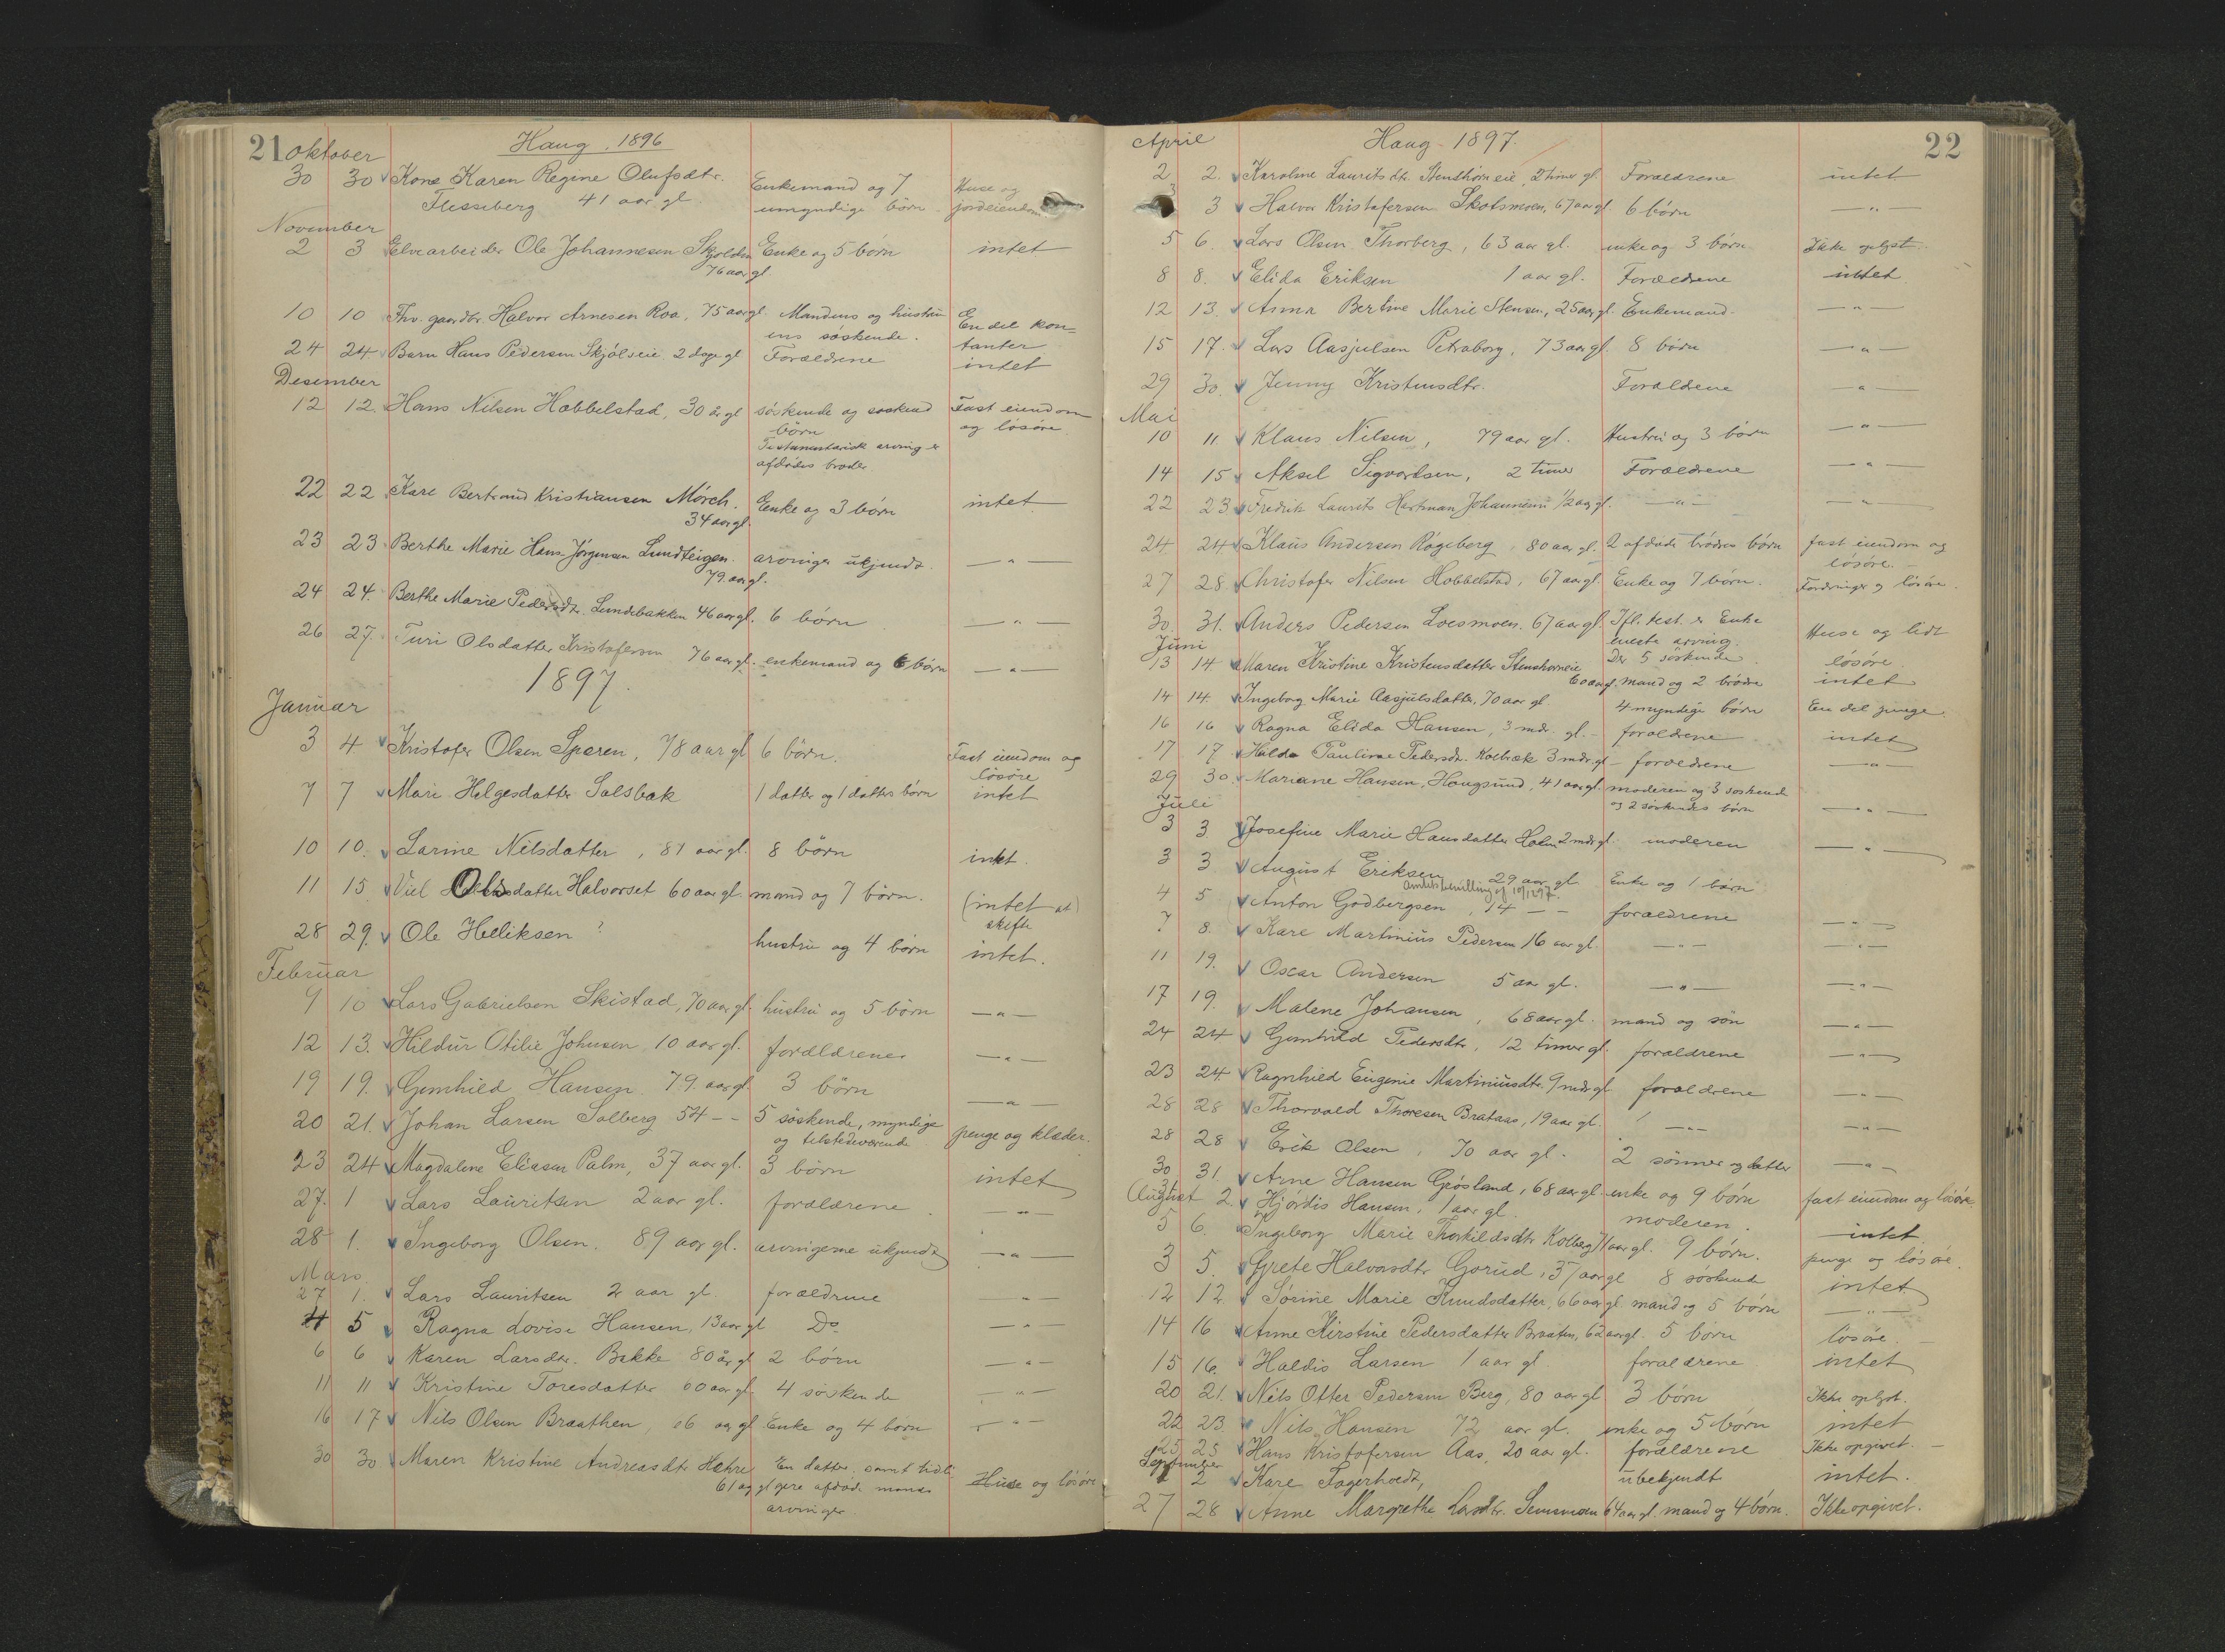 21 Oktober Haug, 1896
30 30 Kone Karen Regine Olufsdtr. Enkemand og 7 Huse og
Flesseberg 41 aar gl umyndige børn jordeiendom
November
2 3 Elvearbeider Ole Johannesen Enke og 5 børn intet
76 aar gl
10 10 Fhv. gaardbr. Halvor Arnesen Roa, 75 aar gl. Mandens og hustru En del kon=
ens søskende. tanter
24 24 Barn Hans Pedersen Skjølseie 2 dage gl Forældrene intet
Desember
12 12. Hans Nilsen Hobbelstad, 30 år gl søskende og søskend Fast eiendom
børn og løsøre
Testamentarisk arving er
afdødes broder
22 22 Karl Bertrand Kristiansen Mørch. Enke og 3 børn intet
34 aar gl.
23 23 Berthe Marie Hans-Jørgensen Lundteigen. arvinger ukjendt. — " —
79 aar gl.
24 24. Berthe Marie Pedersdtr. Lundebakken 46 aar gl. 6 børn — " —
26 27. Turi Olsdatter Kristofersen 76 aar gl. enkemand og 6 børn — " —
1897.
Januar
3 4 Kristofer Olsen Speren, 78 aar gl 6 børn. Fast eiendom og
løsøre
7 7 Mari Helgesdatter Solsbak 1 datter og 1 datters børn intet
10 10. Larine Nilsdatter, 81 aar gl. 8 børn intet.
11 15. Olsdatter Halvorset 60 aar gl. mand og 7 børn. (intet at
skifte
28 29. Ole Helliksen ? hustru og 4 børn intet.
Februar
9 10 Lars Gabrielsen Skistad, 70 aar gl. hustru og 5 børn — " —
12 13. Hildur Otilie Johnsen 10 aar gl. forældrene — " —
19 19. Gunhild Hansen 79 aar gl 3 børn — " —
20 21. Johan Larsen Solberg 54 — — 5 søskende, myndige penge og klæder.
og tilstedeværende
23 24 Magdalene Eliasen Palm, 37 aar gl. 3 børn intet
27. 1 Lars Lauritsen 2 aar gl. forældrene — " —
28 1. Ingeborg Olsen. 89 aar gl. arvingerne ukjendt — " —
Mars.
27 1. Lars Lauritsen 2 aar gl. forældrene — " —
4 5 Ragna Lovise Hansen, 13 aar gl Do — " —
6 6 Karen Larsdtr. Bakke 80 år gl 2 børn — " —
11 11 Kristine Toresdatter 60 aar gl. 4 søskende — " —
16 17 Nils Olsen Braathen, 66 aar gl Enke og 4 børn — " —
30 30 Maren Kristine Andreasdtr Hæhre En datter samt tidli Huse og løsøre
61 aar gl gere afdøde mands
arvinger.
April Haug - 1897. 22
2 2. Karoline Lauritsdtr. Stenshorneie, 2 timer gl. Forældrene intet
3 3 Halvor Kristofersen Skotsmoen, 67 aar gl. 6 børn — " —
5 6. Lars Olsen Thorberg, 63 aar gl. enke og 3 børn Ikke oplyst.
8 8. Elida Eriksen 1 aar gl. Forældrene intet
12 13. Anna Bertine Marie Stensen, 25 aar gl. Enkemand. — " —
15 17. Lars Aasjulsen Petraborg, 73 aar gl. 8 børn — " —
29 30. Jenny Kristensdtr. Forældrene — " —
Mai
10 11 Klaus Nilsen, 79 aar gl. Hustru og 3 børn — " —
14 15 Aksel Sigvardsen, 2 timer Forældrene — " —
22 23 Fredrik Laurits Hartman Johannesen 1/2 aar gl. — " — — " —
24 24 Klaus Andersen Røgeberg, 80 aar gl. 2 afdøde brødres børn fast eiendom og
løsøre. —
27 28. Christofer Nilsen Hobbelstad, 67 aar gl. Enke og 7 børn. Fordringer og løsøre.
30. 31. Anders Pedersen Loesmoen. 67 aar gl. Ifl. test. er Enke Huse og lidt
eneste arving. løsøre.
Juni Der 5 søskende
13 14 Maren Kristine Kristensdatter Stenshorneie
60 aar gl. mand og 2 brødre intet
14 14. Ingeborg Marie Aasjulsdatter, 70 aar gl. 4 myndige børn En del penge.
16 16 Ragna Elida Hansen, 3 mdr. gl. - forældrene intet
17 17 Hilda Pauline Pedersdtr. Kolbræk 3 mdr. gl - forældrene — " —
29 30. Mariane Hansen, Hougsund, 41 aar gl. moderen og 3 søskende
og 2 søskendes børn — " —
Juli
3 3 Josefine Marie Hansdatter Holm 2 mdr gl. moderen — " —
3 3 August Eriksen 29 aar gl. Enke og 1 barn
Amtsbevilling af 10/12 97.
4 5 Anton Godbergsen, 14 — — forældrene — " —
7 8. Kare Martinius Pedersen 16 aar gl. — " — — " —
11 19. Oscar Andersen 5 aar gl. — " — — " —
17 19. Malene Johansen, 68 aar gl. mand og søn — " —
24 24 Gunhild Pedersdtr, 12 timer gl. forældrene — " —
23 24. Ragnhild Eugenie Martiniusdtr. 9 mdr gl forældrene — " —
28 28 Thorvald Thoresen Brataas, 19 aar gl. — " — — " —
28 28 Erik Olsen, 70 aar gl. 2 sønner og datter — " —
30 31. Arne Hansen Grøsland, 68 aar gl. enke og 9 børn fast eiendom og løsøre.
August
31 2. Hjørdis Hansen, 1 aar gl. moderen. intet
5 6. Ingeborg Marie Thorkildsdtr Kolberg 71 aar gl. 9 børn. penge og løsøre.
3 5. Grete Halvorsdtr Gorud, 57 aar gl 8 søskende intet
12 12 Sørine Marie Knudsdatter, 66 aar gl. mand og 5 børn — " —
14 16 Anne Kirstine Pedersdatter Braaten, 62 aar gl. 5 børn løsøre.
15 16. Haldis Larsen 1 aar gl. forældrene intet
20 21. Nils Otter Pedersen Berg, 80 aar gl 3 børn Ikke oplyst.
22 23. Nils Hansen 72 aar gl. enke og 5 børn intet
25 25 Hans Kristofersen Aas, 20 aar gl. forældrene Ikke opgivet. —
September
2 Kare Fagerhoedt, ubekjendt intet.
27 28 Anne Margrethe Larsdtr. Semsmoen 64 aar gl. mand og 4 børn. Ikke opgivet.